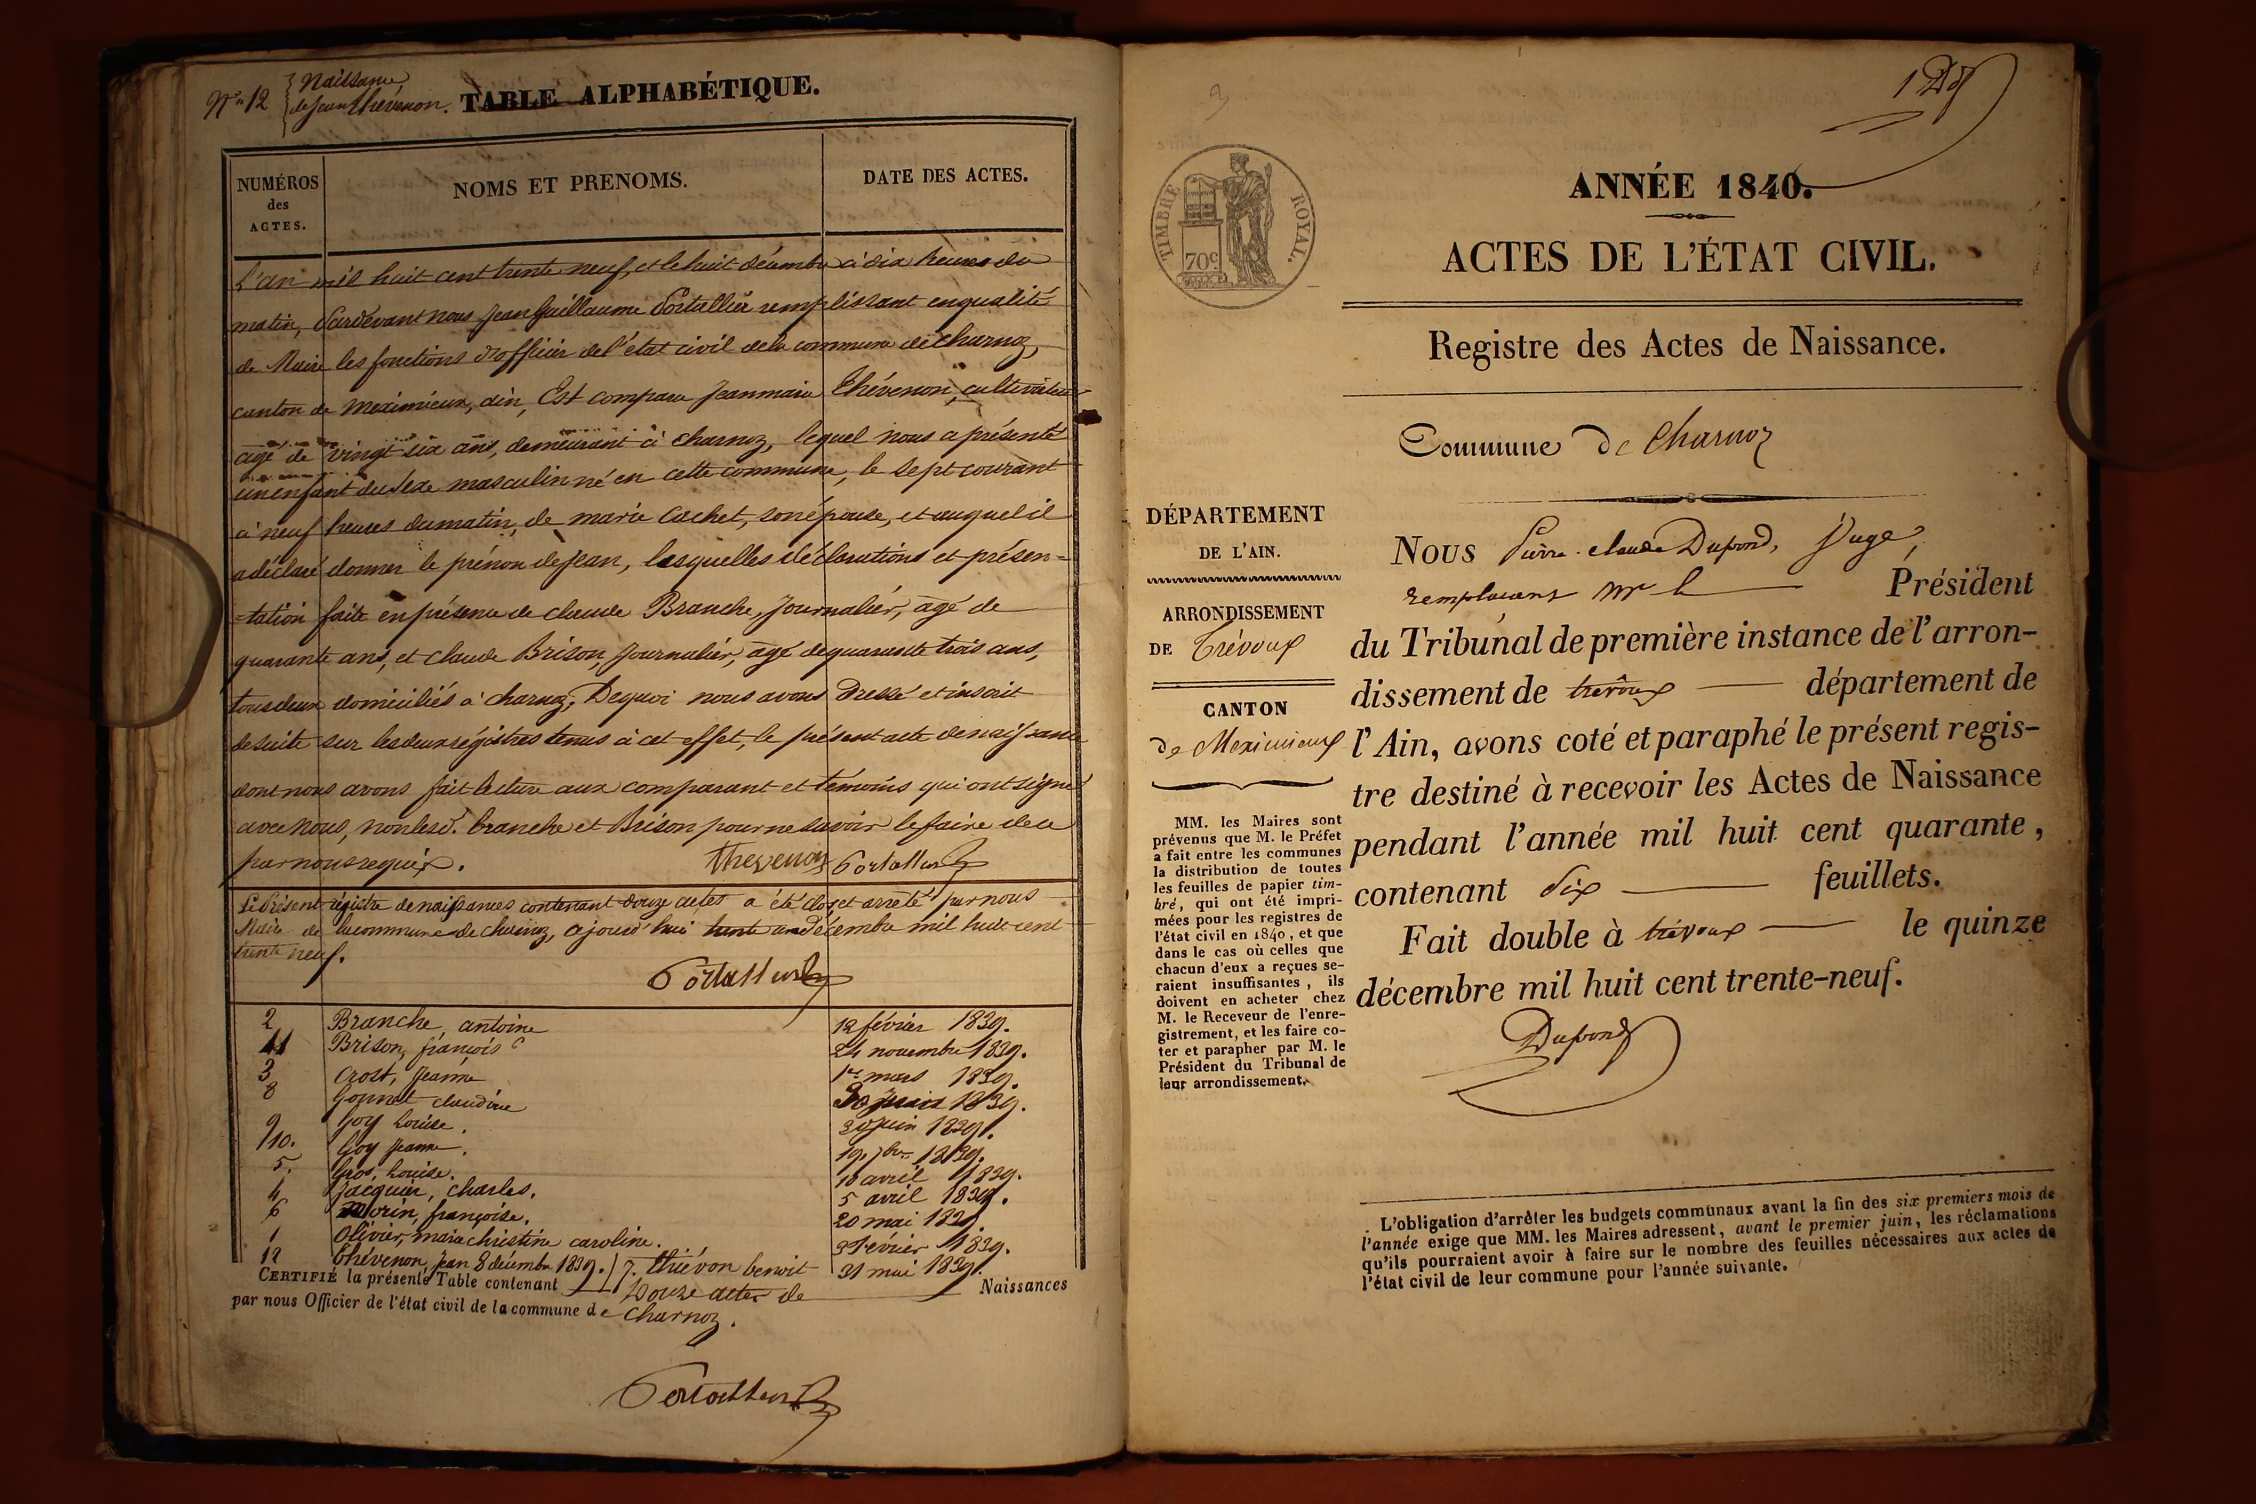 N° 12 Naissance
de Jean Thévenon.
TABLE ALPHABÉTIQUE.
NUMÉROS
des
ACTES.
NOMS ET PRENOMS.
DATE DES ACTES.
L'an mil huit cent trente neuf, et le huit décembre à dix heures du
matin, Pardevant nous Jean Guillaume Portallier remplissant en qualité
de Maire les fonctions d'officier de l'état civil de la commune de Charnoz,
canton de Meximieux, ain, Est comparu Jeanmarie Thévenon, cultivateur
agé de vingt six ans, demeurant à charnoz, lequel nous a présenté
un enfant du séxe masculin né en cette commune, le sept courant
à neuf heures du matin, de marie Cachet, son épouse, et auquel il
a déclaré donner le prénon de Jean, lesquelles déclarations et présen=
=tation faite en présence de claude Branche, Journalier, agé de
quarante ans, et Claude Brison, Journalier, agé de quarante trois ans,
tous deux domiciliés à charnoz; De quoi nous avons Dressé et inscrit
de suite sur les deux régistres tenus à cet effet, le présent acte de naissance
dont nous avons fait lecture aux comparant et témoins qui ont signé
avec Nous, non les d. branche et Brison pour ne savoir le faire de ce
par nous requis.
thevenon Portallier
Le Présent régistre de naissances contenant douze actes a été clos et arrêté par nous
Maire de la commune de charnoz, aujourd'hui trente un décembre mil huit cent
trente neuf.
Portallier
2 Branche, antoine 12 février 1839.
11 Brison, françois 24 novembre 1839.
3 Crost, Jeanne 1er mars 1839.
8 Gonnet claudine 1839.
9 Goy Louise. 30 Juin 1839.
10. Goy Jeanne. 19. 7bre 1839.
5. Gros, Louise. 10 avril 1839.
4 Jacquier, Charles. 5 avril 1839.
6 Morin, françoise. 20 mai 1839.
1 Olivier, marie christine caroline. février 1839.
12 Thévenon, Jean 8 décembre 1839. 7. thiévon benoit 21 mai 1839.
CERTIFIÉ la présente Table contenant Douze actes de Naissances
par nous Officier de l'état civil de la commune de Charnoz.
Portallier
TIMBRE ROYAL.
70c
ANNÉE 1840.
ACTES DE L'ÉTAT CIVIL.
Registre des Actes de Naissance.
Commune de Charnoz
DÉPARTEMENT
DE L'AIN.
ARRONDISSEMENT
DE Trévoux
CANTON
de Meximieux
MM. les Maires sont
prévenus que M. le Préfet
a fait entre les communes
la distribution de toutes
les feuilles de papier tim-
bré, qui ont été impri-
mées pour les registres de
l'état civil en 1840, et que
dans le cas où celles que
chacun d'eux a reçues se-
raient insuffisantes, ils
doivent en acheter chez
M. le Receveur de l'enre-
gistrement, et les faire co-
ter et parapher par M. le
Président du Tribunal de
leur arrondissement.
NOUS Pierre-claude Dupond, Juge,
remplaçant Mr le Président
du Tribunal de première instance de l'arron-
dissement de trévoux département de
l'Ain, avons coté et paraphé le présent regis-
tre destiné à recevoir les Actes de Naissance
pendant l'année mil huit cent quarante,
contenant six feuillets.
Fait double à trévoux le quinze
décembre mil huit cent trente-neuf.
Dupond
L'obligation d'arrêter les budgets communaux avant la fin des six premiers mois de
l'année exige que MM. les Maires adressent, avant le premier juin, les réclamations
qu'ils pourraient avoir à faire sur le nombre des feuilles nécessaires aux actes de
l'état civil de leur commune pour l'année suivante.